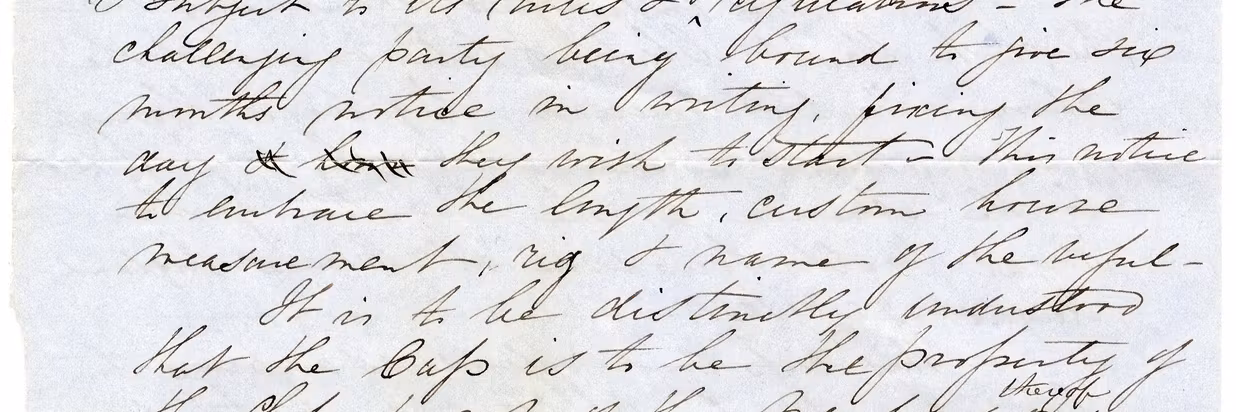 & subject to its rules & regulations - The
challenging party being bound to give six
months notice in writing, fixing the
day & hour they wish to start - This notice
to embrace the length, custom house
measurement, rig & name of the vessel -
It is to be distinctly understood
that the Cup is to be the property of
thereof
the Club